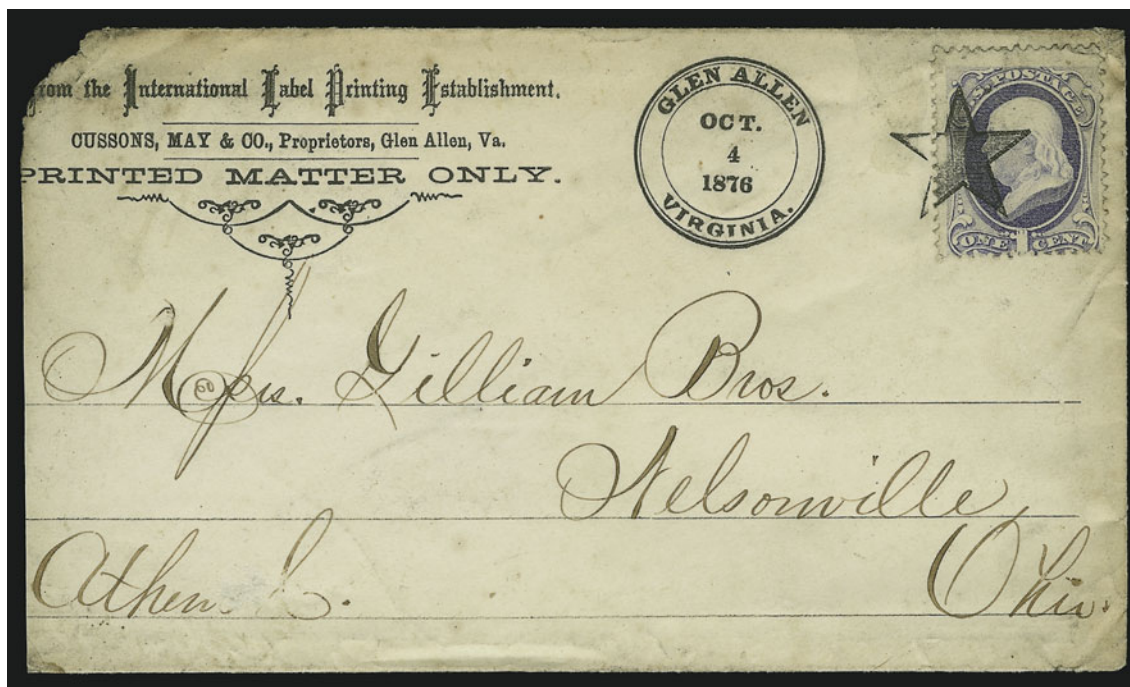 From the International Label Printing Establishment.
CUSSONS, MAY & CO., Proprietors, Glen Allen, Va.
PRINTED MATTER ONLY.
GLEN ALLEN
OCT.
4
1876
VIRGINIA.
POSTAGE
ONE 1 CENT
Gilliam Bros.
Nelsonville,
Athen. C. Ohio.